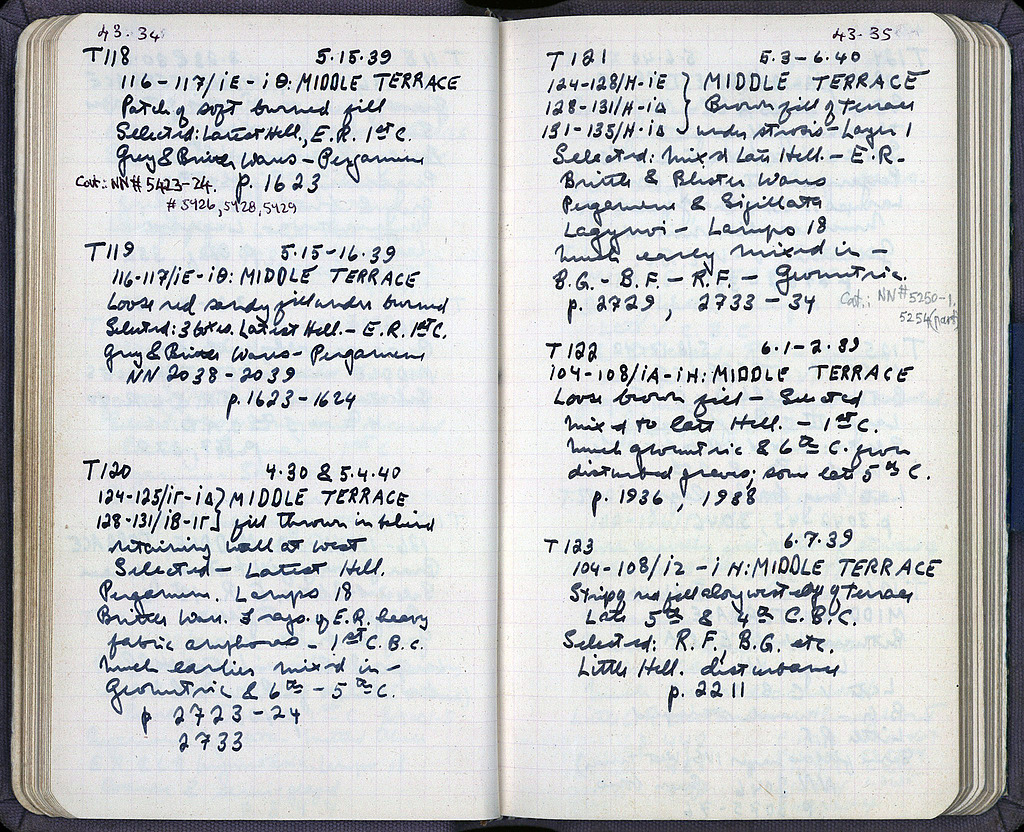 43.34
T118 5.15.39
116-117/ΙΕ-ΙΘ: MIDDLE TERRACE
Patch of soft burned fill
Selected: Latest Hell., E.R. 1st C.
Grey & Brittle Wares - Pergamene
Cat.: NN# 5423-24. p. 1623
# 5426, 5428, 5429
T119 5.15-16.39
116-117/ΙΕ-ΙΘ: MIDDLE TERRACE
Loose red sandy fill under burned
Selected: Latest Hell. - E.R. 1st C.
Grey & Brittle Wares - Pergamene
NN 2038-2039
p. 1623-1624
T120 4.30 & 5.4.40
124-125/ΙΓ-ΙΔ } MIDDLE TERRACE
128-131/ΙΒ-ΙΓ } fill thrown in behind
retaining wall at west
Selected - Latest Hell.
Pergamene. Lamps 18
Brittle Ware. 3 rays. of E.R. heavy
fabric amphoras - 1st C.B.C.
Much earlier mixed in -
Geometric & 6th - 5th C.
p 2723-24
2733
43.35
T121 5.3-6.40
124-128/Η-ΙΕ } MIDDLE TERRACE
128-131/Η-ΙΔ } Brown fill of terrace
131-135/Η-ΙΔ } under strosis - Layer 1
Selected: mixed Late Hell. - E.R.
Brittle & Blister Wares
Pergamene & Sigillata
Lagynoi - Lamps 18
Much early mixed in -
B.G. - B.F. - R.F. - Geometric.
p. 2729, 2733-34 Cat.: NN# 5250-1,
5254 (part)
T122 6.1-2.39
104-108/ΙΑ-ΙΗ: MIDDLE TERRACE
Loose brown fill - Selected
mixed to late Hell. - 1st C.
Much geometric & 6th C. from
disturbed graves; some late 5th C.
p. 1936, 1988
T123 6.7.39
104-108/ΙΖ-ΙΗ: MIDDLE TERRACE
Stripy red fill along west edge of terrace
Late 5th & 4th C.B.C.
Selected: R.F., B.G. etc.
Little Hell. disturbance
p. 2211